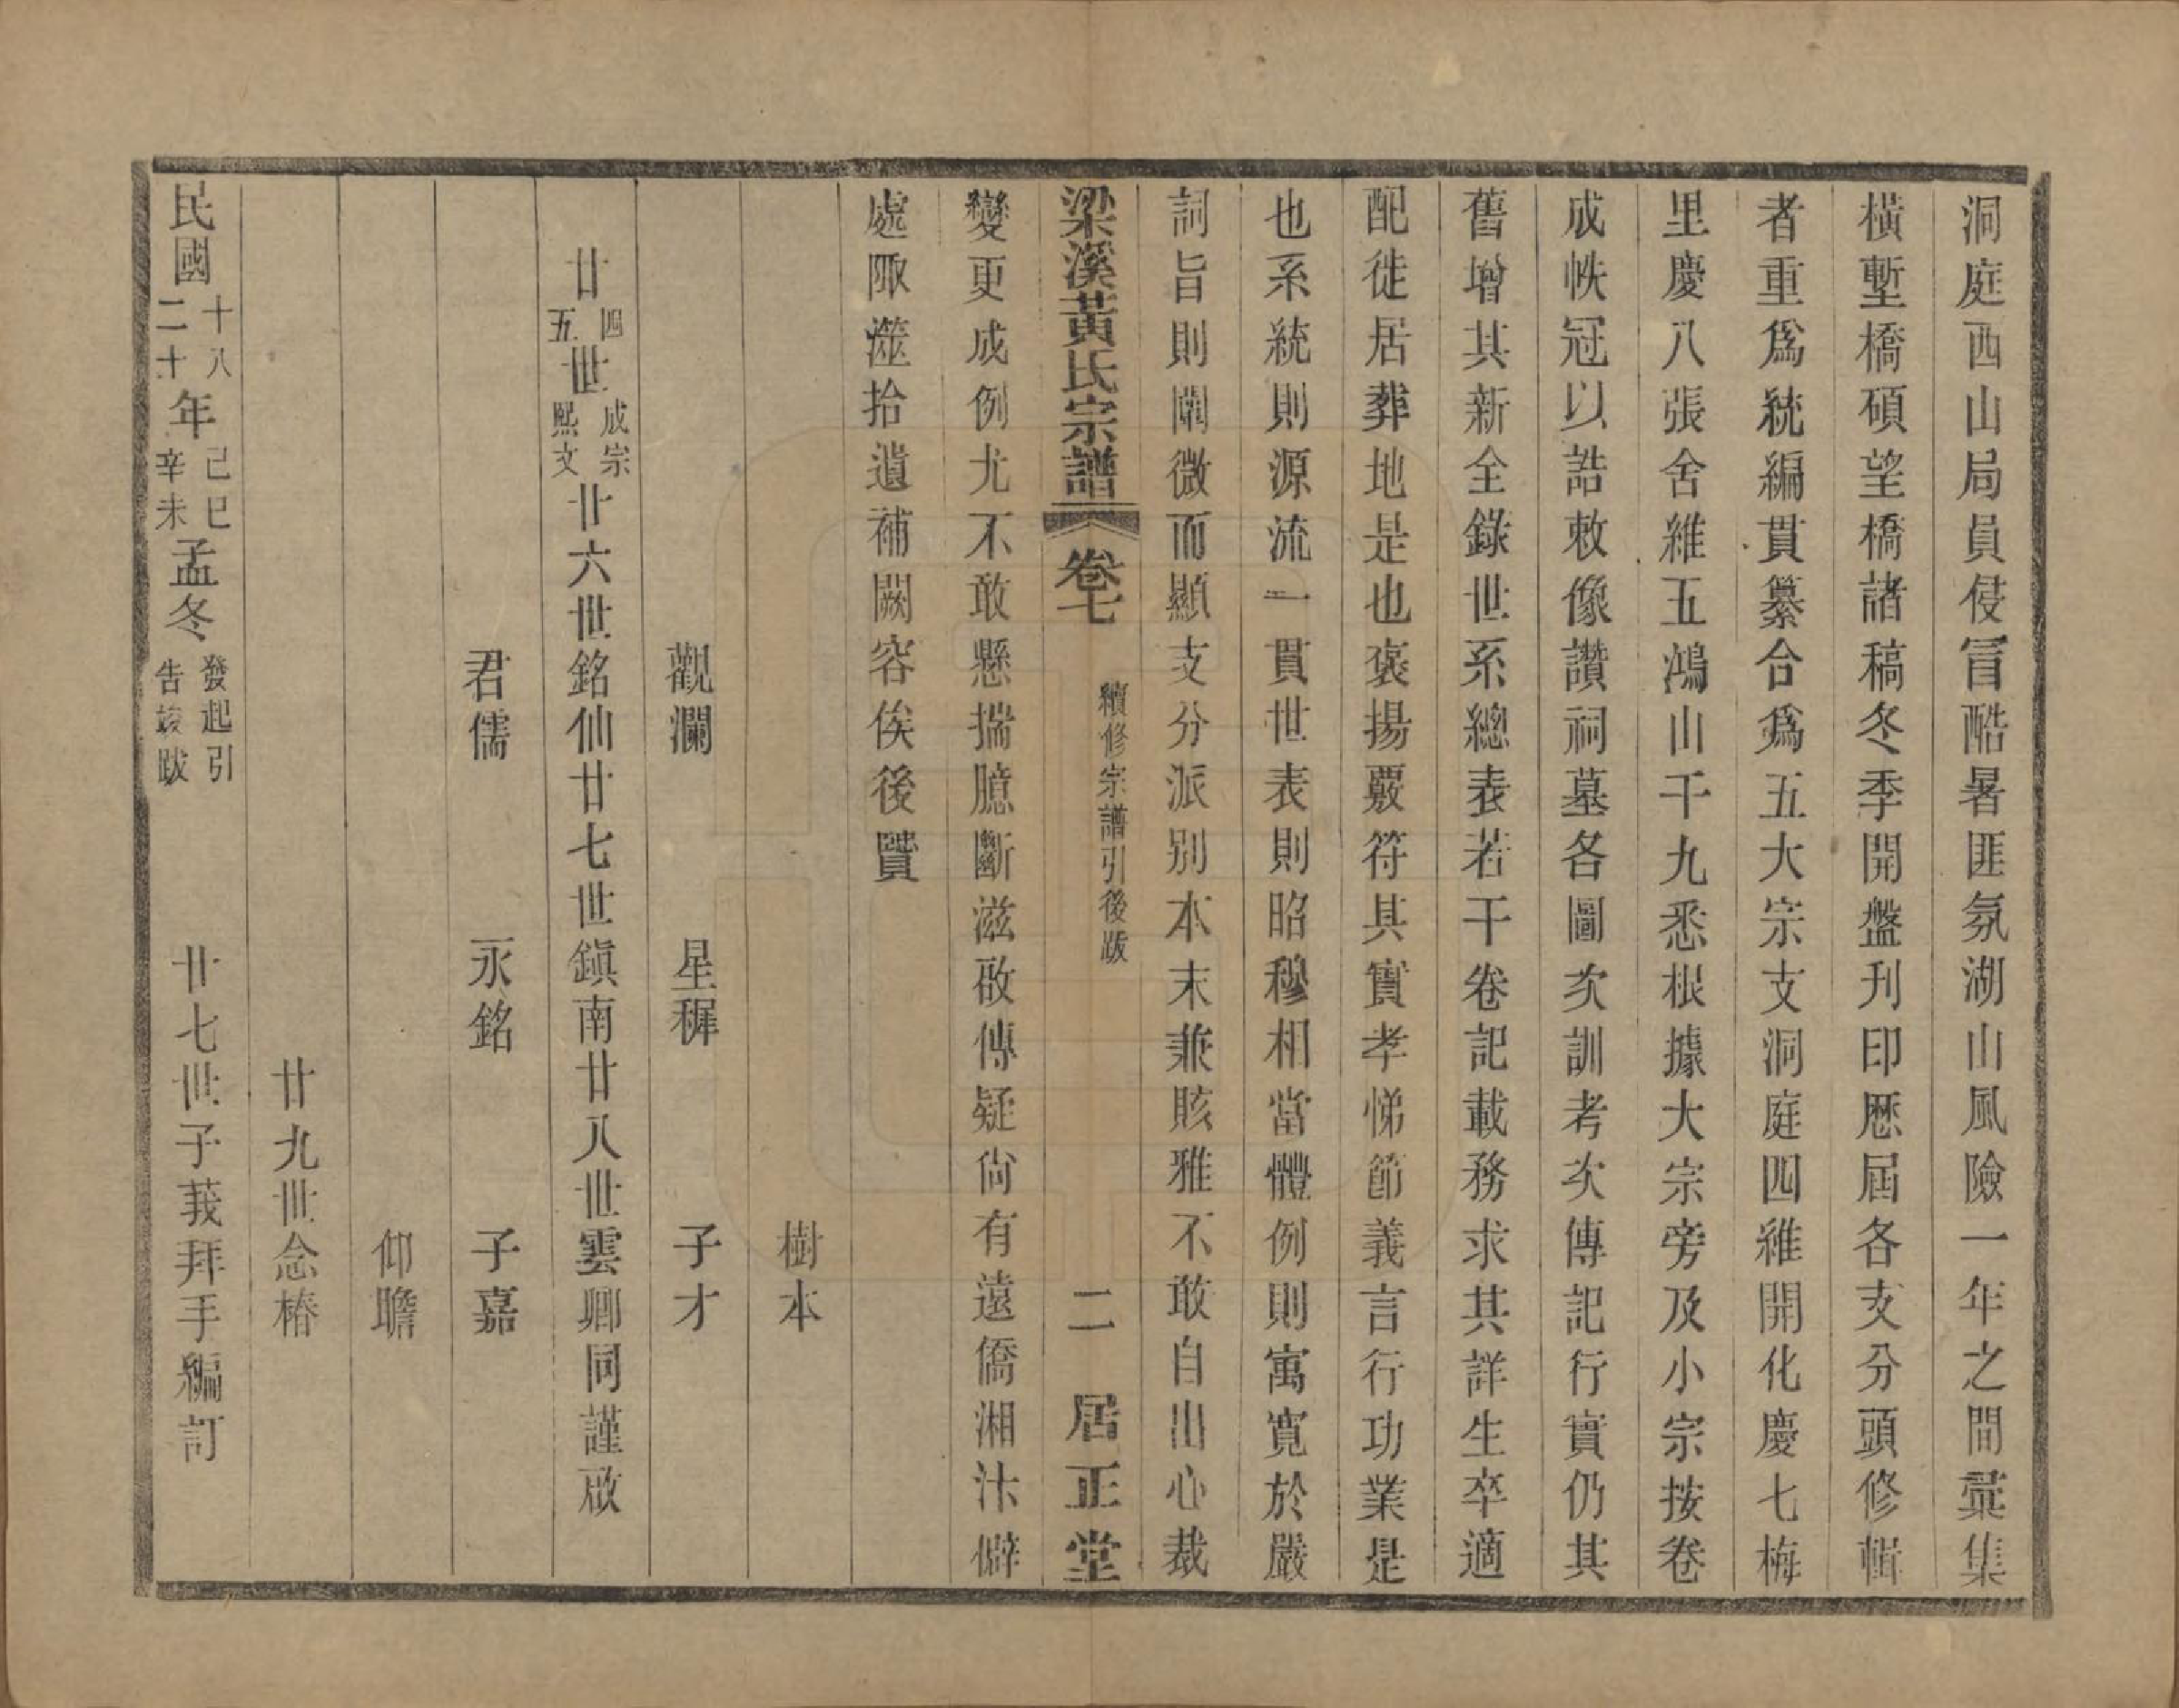 洞庭西山局員侵冒酷暑匪氛湖山風險一年之間彙集
橫塹橋碩望橋諸稿冬季開盤刊印歷屆各支分頭修輯
者重爲統編貫纂合爲五大宗支洞庭四維開化慶七梅
里慶八張舍維五鴻山千九悉根據大宗旁及小宗按卷
成帙冠以誥敕像讚祠墓各圖次訓考次傳記行實仍其
舊增其新全錄世系總表若干卷記載務求其詳生卒適
配徙居葬地是也褒揚覈符其實孝悌節義言行功業是
也系統則源流一貫世表則昭穆相當體例則寓寬於嚴
詞旨則闡微而顯支分派別本末兼賅雅不敢自出心裁
梁溪黃氏宗譜 卷七 續修宗譜引後跋 二 居正堂
變更成例尤不敢懸揣臆斷滋啟傳疑尚有遠僑湘汴僻
處陬澨拾遺補闕容俟後賢
樹本
觀瀾 星穉 子才
廿四五世成宗熙文廿六世銘仙廿七世鎮南廿八世雲卿同謹啟
君儒 永銘 子嘉
仰瞻
廿九世念椿
民國十八二十年己巳辛未孟冬發起引告竣跋 廿七世子莪拜手編訂